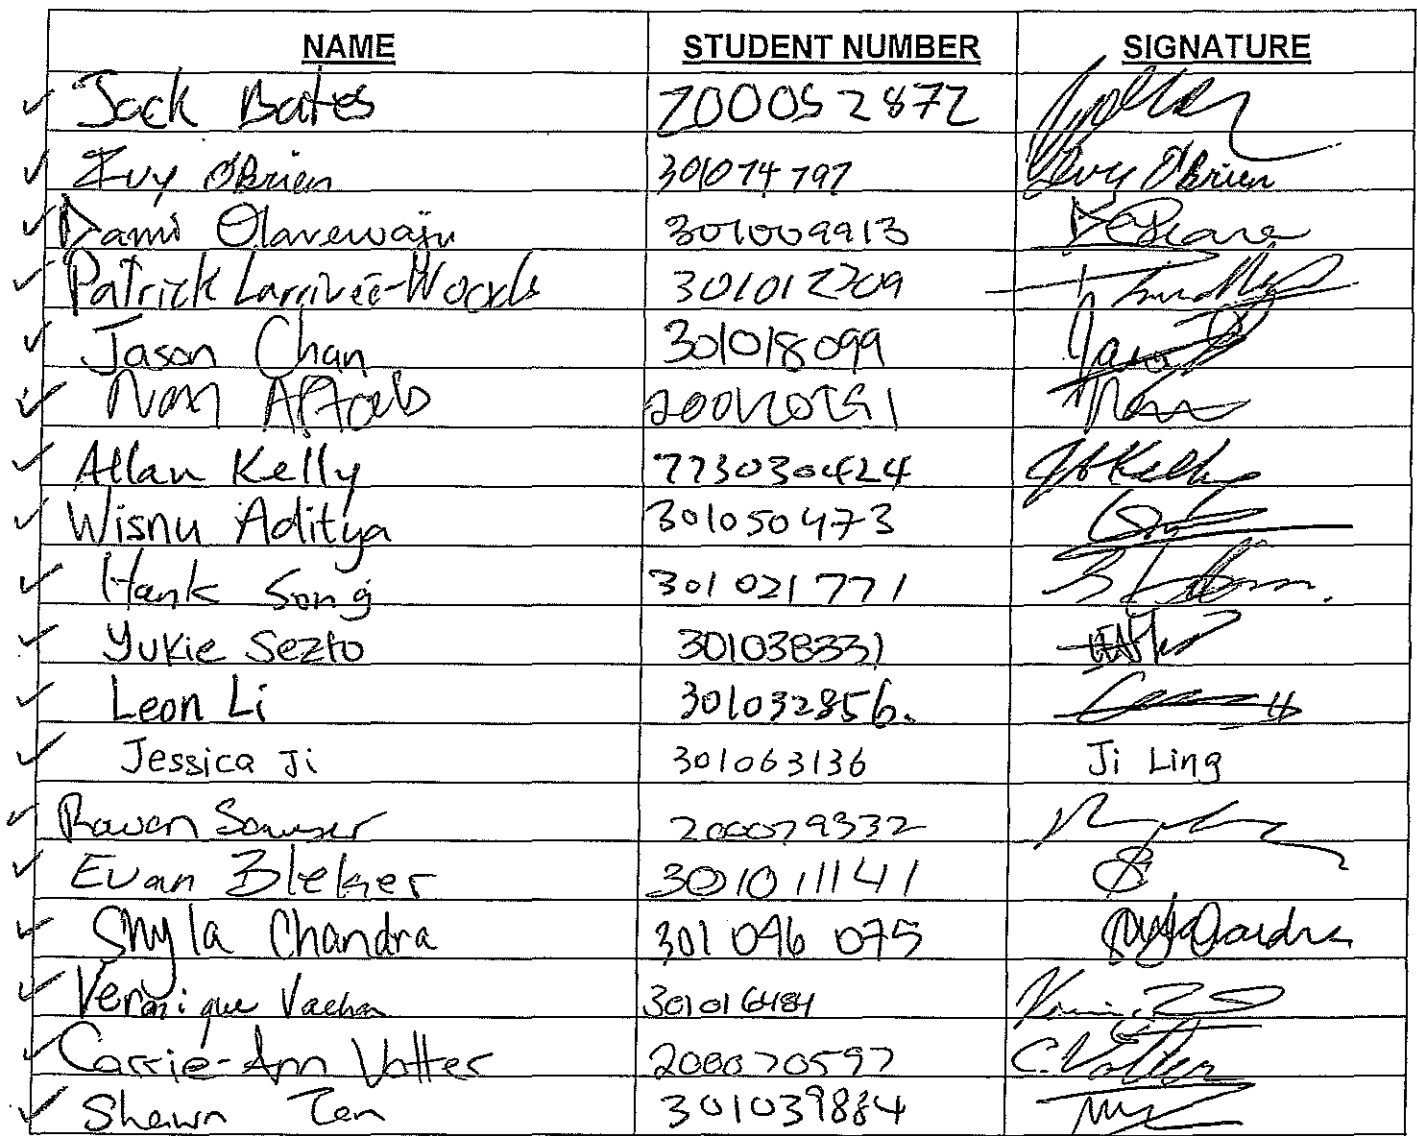 NAME STUDENT NUMBER SIGNATURE
Jack Bates 200052872
Zuy O'Brien 301074797 Zuy O'Brien
Dami Olarewaju 301009913
Patrick Larrivée-Woods 301012209
Jason Chan 301018099
Allan Kelly 7730304424 Kelly
Wisnu Aditya 301050473
Hank Song 301021771
Yukie Sezto 301038331
Leon Li 301032856.
Jessica Ji 301063136 Ji Ling
Rawan 200079332
Evan Bleker 301011141
Shyla Chandra 301 096 075
Veronique Vachon 301016484
Carrie-Ann Votter 200070597 C. Votter
Shawn Tan 301039884